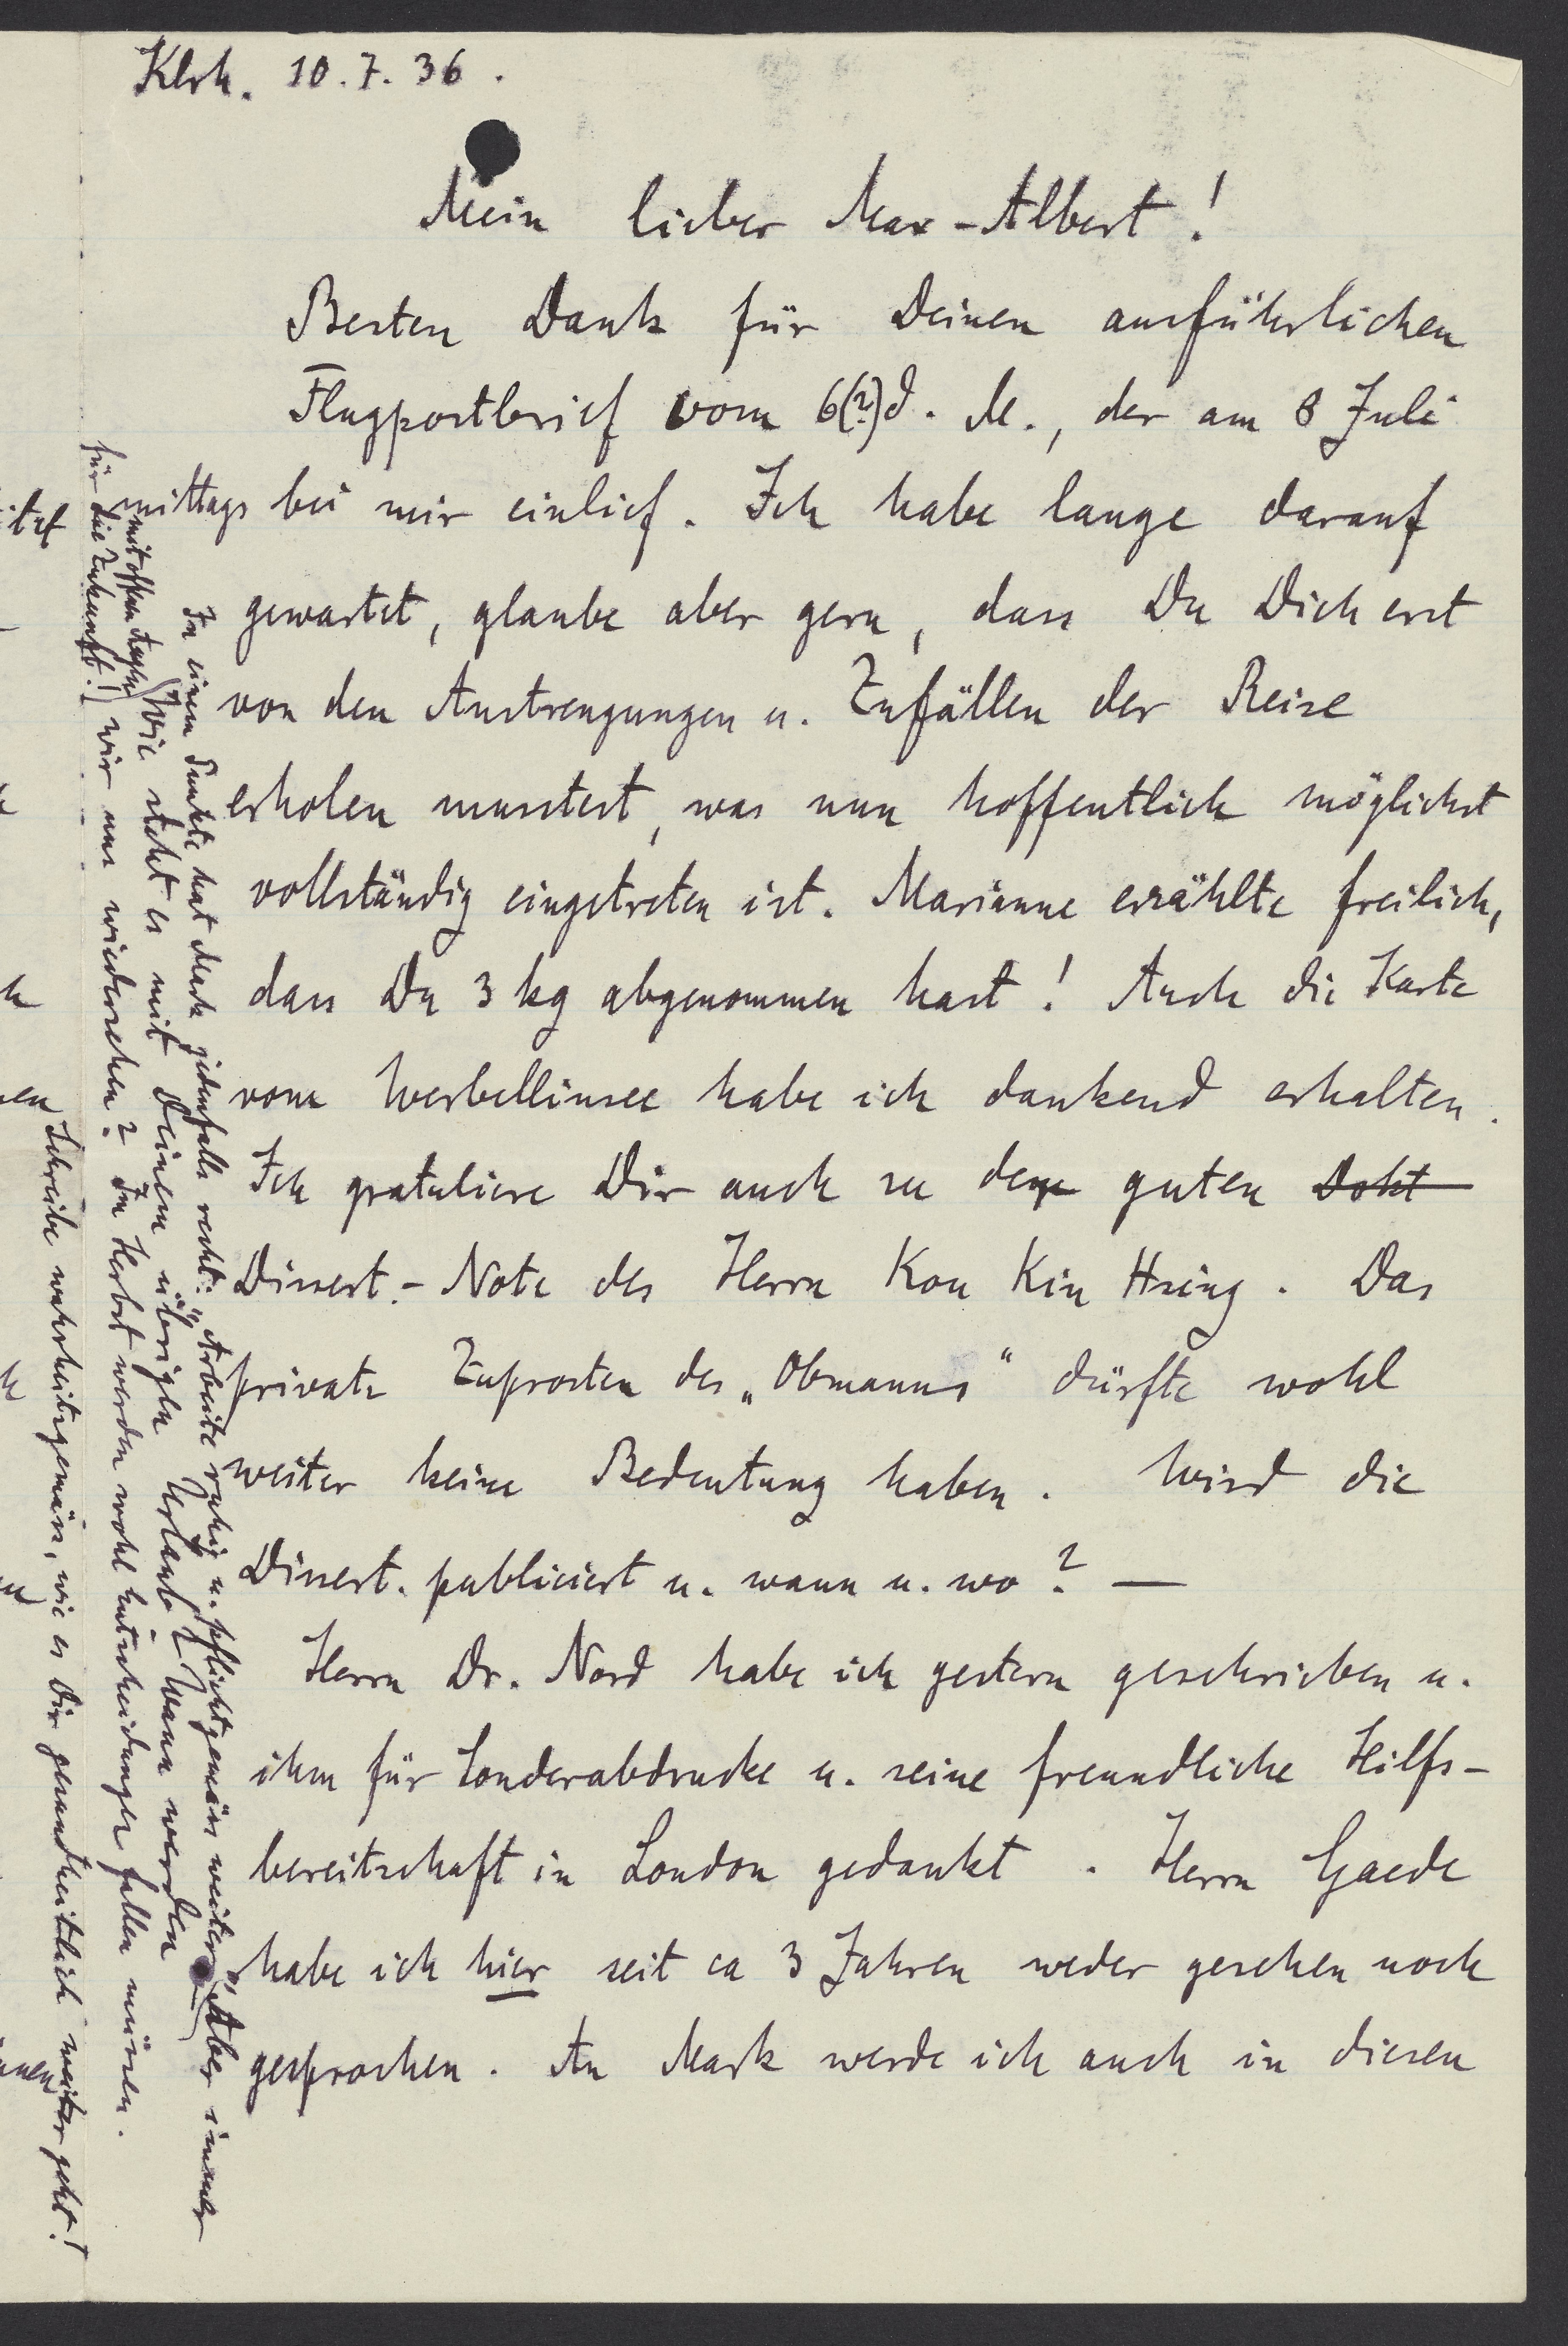 Klrh. 10.7.36.
Mein lieber Max-Albert!
Besten Dank für Deinen ausführlichen
Flugpostbrief vom 6(?) d. M., der am 8 Juli
mittags bei mir einlief. Ich habe lange darauf
gewartet, glaube aber gern, dass Du Dich erst
von den Anstrengungen u. Zufällen der Reise
erholen musstest, was nun hoffentlich möglichst
vollständig eingetreten ist. Marianne erzählte freilich,
dass Du 3 kg abgenommen hast! Auch die Karte
vom Werbellinsee habe ich dankend erhalten.
Ich gratuliere Dir auch zu der guten Dokt
Dissert.-Note des Herrn Kou Kin Hsing. Das
private Zuprosten des „Obmanns“ dürfte wohl
weiter keine Bedeutung haben. Wird die
Dissert. publiciert u. wann u. wo? —
Herrn Dr. Nord habe ich gestern geschrieben u.
ihm für Sonderabdrucke u. seine freundliche Hilfs-
bereitschaft in London gedankt. Herrn Gaede
habe ich hier seit ca 3 Jahren weder gesehen noch
gesprochen. An Mark werde ich auch in diesen
In einem Punkte hat Mark jedenfalls recht: „Arbeite ruhig u. pflichtgemäss weiter“ (Aber immer
mit offenen Augen
für die Zukunft!)
Wie steht es mit Deinem übrigen Urlaub? Wann werden
wir uns wiedersehen? Im Herbst werden wohl Entscheidungen fallen müssen.
Schreibe wahrheitsgemäss, wie es Dir gesundheitlich weiter geht!